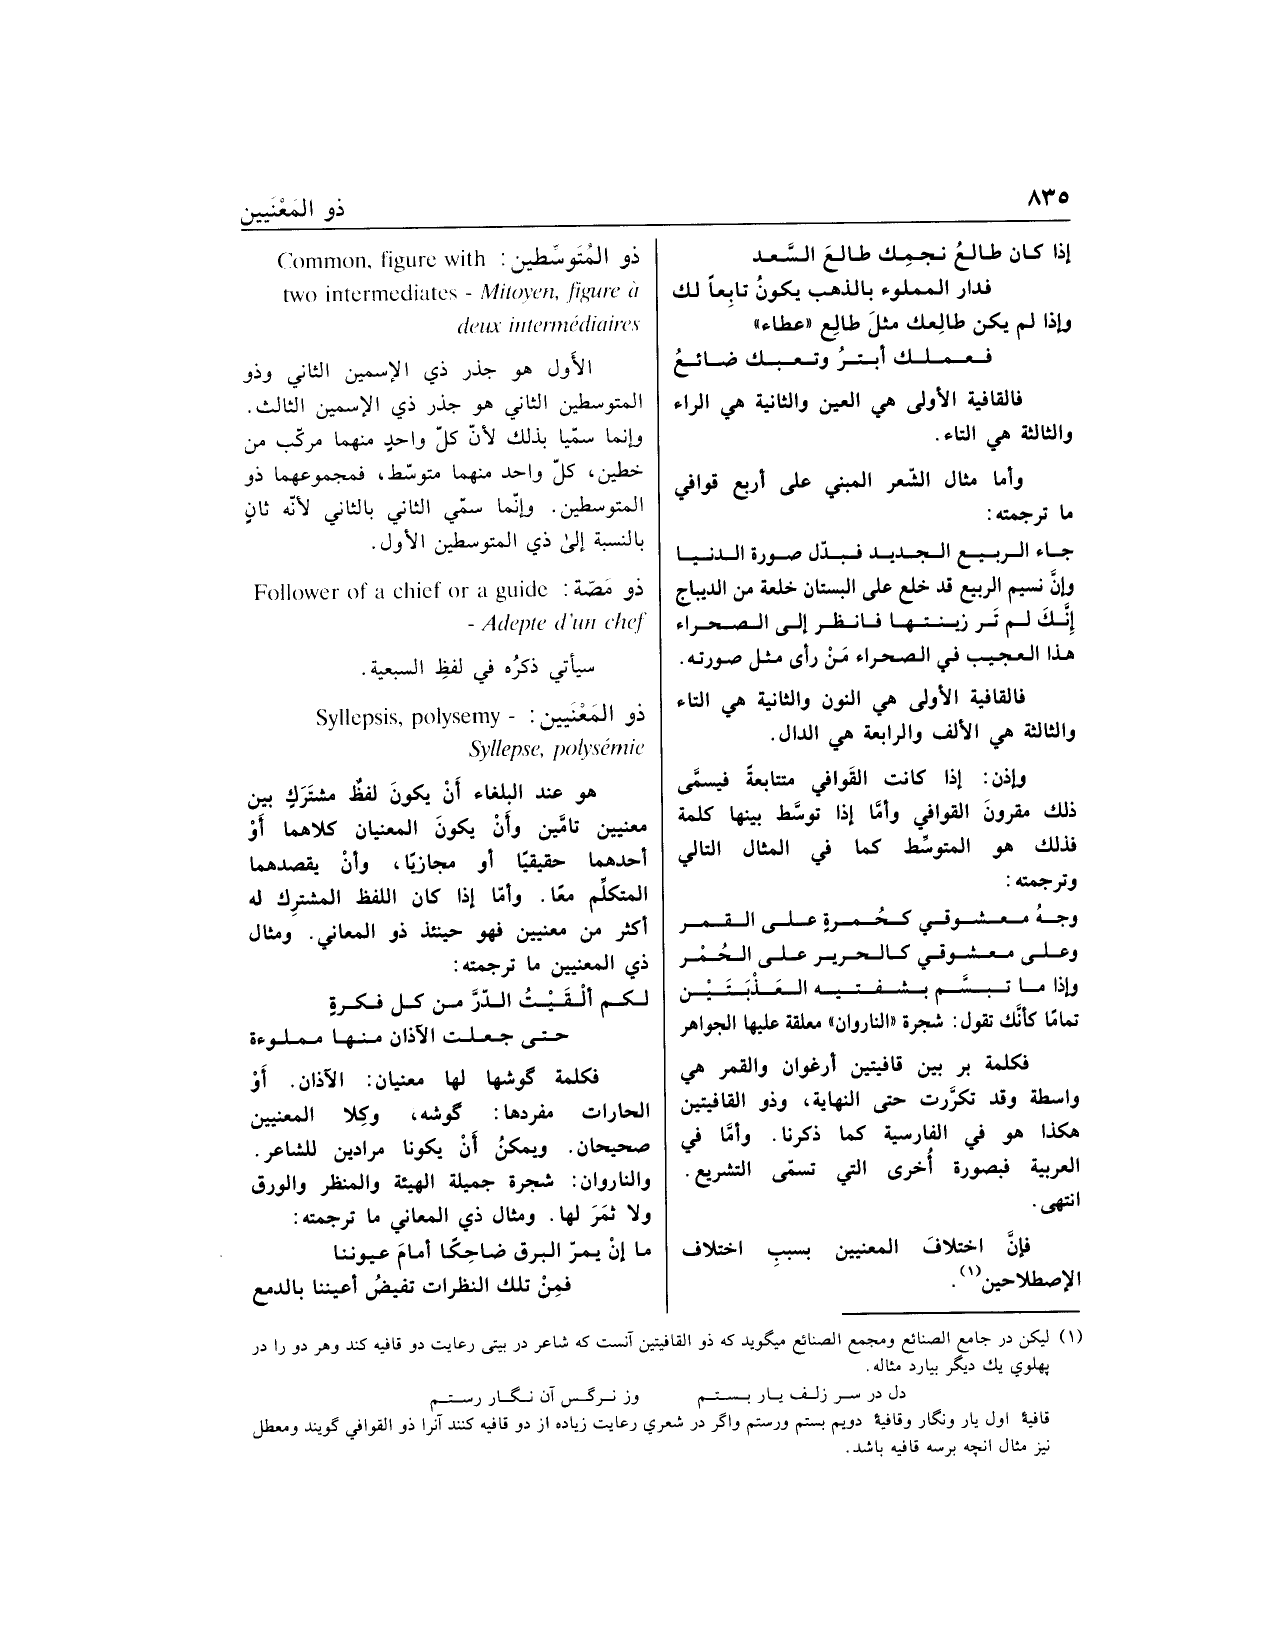 ٨٣٥
ذو المَعْنَيين
إذا كان طالعُ نجمِك طالعَ السَّعد
فدار المملوء بالذهب يكونُ تابِعاً لك
وإذا لم يكن طالِعك مثلَ طالِع «عطاء»
فعملك أبترُ وتعبك ضائعُ
فالقافية الأولى هي العين والثانية هي الراء
والثالثة هي التاء.
وأما مثال الشّعر المبني على أربع قوافي
ما ترجمته:
جاء الربيع الجديد فبدّل صورة الدنيا
وإنَّ نسيم الربيع قد خلع على البستان خلعة من الديباج
إنَّكَ لم تَر زينتها فانظر إلى الصحراء
هذا العجيب في الصحراء مَنْ رأى مثل صورته.
فالقافية الأولى هي النون والثانية هي التاء
والثالثة هي الألف والرابعة هي الدال.
وإذن: إذا كانت القَوافي متتابعةً فيسمَّى
ذلك مقرونَ القوافي وأمَّا إذا توسَّط بينها كلمة
فذلك هو المتوسِّط كما في المثال التالي
وترجمته:
وجهُ معشوقي كخُمرةٍ على القمر
وعلى معشوقي كالحرير على الخُمْر
وإذا ما تبسَّم بشفتيه العَذْبَتَيْن
تمامًا كأنَّك تقول: شجرة «الناروان» معلقة عليها الجواهر
فكلمة بر بين قافيتين أرغوان والقمر هي
واسطة وقد تكرَّرت حتى النهاية، وذو القافيتين
هكذا هو في الفارسية كما ذكرنا. وأمَّا في
العربية فبصورة أُخرى التي تسمّى التشريع.
انتهى.
فإنَّ اختلافَ المعنيين بسببِ اختلاف
الإصطلاحين(١).
ذو المُتَوسِّطين: Common, figure with
two intermediates - Mitoyen, figure à
deux intermédiaires
الأَول هو جذر ذي الإسمين الثاني وذو
المتوسطين الثاني هو جذر ذي الإسمين الثالث.
وإنما سمّيا بذلك لأنّ كلّ واحدٍ منهما مركّب من
خطين، كلّ واحد منهما متوسّط، فمجموعهما ذو
المتوسطين. وإنّما سمّي الثاني بالثاني لأنّه ثانٍ
بالنسبة إلىٰ ذي المتوسطين الأول.
ذو مَصّة: Follower of a chief or a guide
- Adepte d'un chef
سيأتي ذكرُه في لفظِ السبعية.
ذو المَعْنَيين: Syllepsis, polysemy -
Syllepse, polysémie
هو عند البلغاء أَنْ يكونَ لفظٌ مشتَرَكٍ بين
معنيين تامَّين وأَنْ يكونَ المعنيان كلاهما أَوْ
أحدهما حقيقيًا أو مجازيًا، وأنْ يقصدهما
المتكلِّم معًا. وأمّا إذا كان اللفظ المشترِك له
أكثر من معنيين فهو حينئذ ذو المعاني. ومثال
ذي المعنيين ما ترجمته:
لكم ألْقَيْتُ الدّرَّ من كل فكرةٍ
حتى جعلت الآذان منها مملوءة
فكلمة گوشها لها معنيان: الآذان. أَوْ
الحارات مفردها: گوشه، وكلا المعنيين
صحيحان. ويمكنُ أَنْ يكونا مرادين للشاعر.
والناروان: شجرة جميلة الهيئة والمنظر والورق
ولا ثمَرَ لها. ومثال ذي المعاني ما ترجمته:
ما إنْ يمرّ البرق ضاحِكًا أمامَ عيوننا
فمِنْ تلك النظرات تفيضُ أعيننا بالدمع
(١) ليكن در جامع الصنائع ومجمع الصنائع ميگويد كه ذو القافيتين آنست كه شاعر در بيتى رعايت دو قافيه كند وهر دو را در
پهلوي يك ديگر بيارد مثاله.
دل در سر زلف يار بستم وز نرگس آن نگار رستم
قافيهٔ اول يار ونگار وقافيهٔ دويم بستم ورستم واگر در شعري رعايت زياده از دو قافيه كنند آنرا ذو القوافي گويند ومعطل
نيز مثال انچه برسه قافيه باشد.